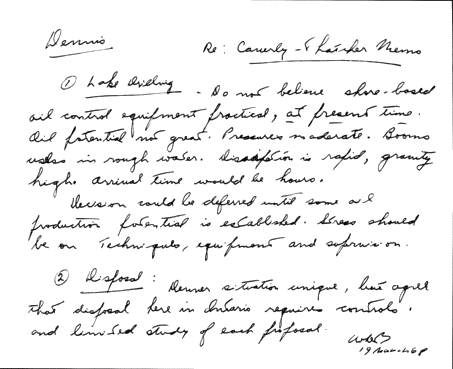 Dennis
Re: Caverly - Thatcher Memo
① Lake Drilling - Do not believe shore-based
oil control equipment practical, at present time.
Oil potential not great. Pressures moderate. Booms
useless in rough water. Dissipation is rapid, gravity
high. Arrival time would be hours.
Decision could be deferred until some oil
production potential is established. Stress should
be on techniques, equipment and supervision.
② Disposal: Denver situation unique, but agree
that disposal here in Ontario requires controls,
and limited study of each proposal.
19 March 68